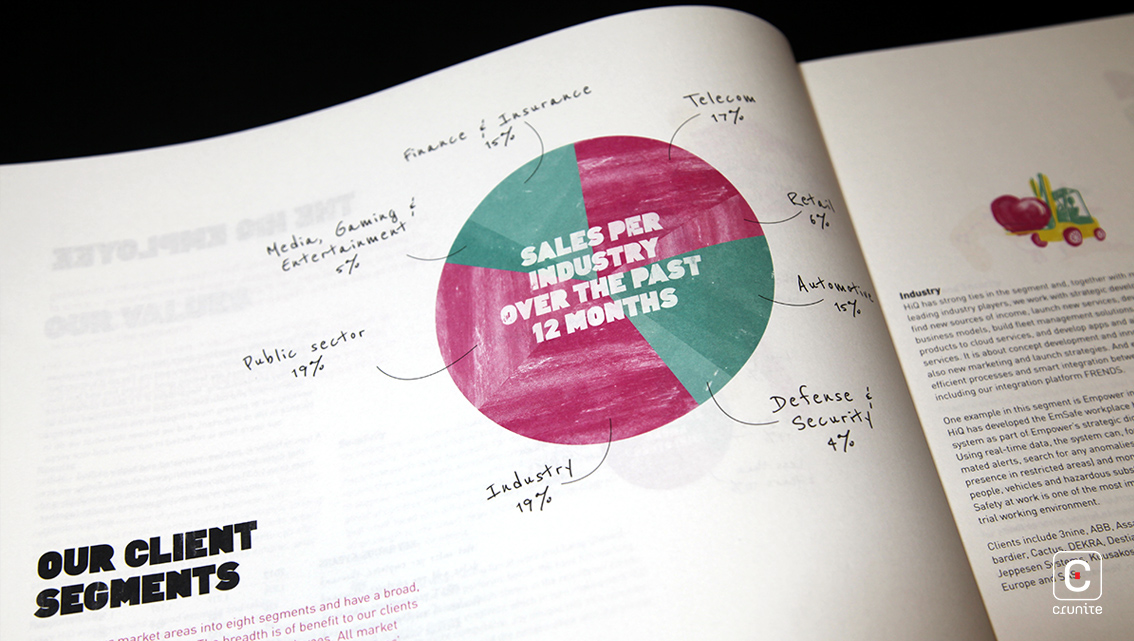 Finance & Insurance
15%
Telecom
17%
Retail
6%
Media, Gaming &
Entertainment
5%
Automotive
15%
Public sector
19%
Defense &
Security
4%
Industry
19%
SALES PER
INDUSTRY
OVER THE PAST
12 MONTHS
OUR CLIENT
SEGMENTS
market areas into eight segments and have a broad,
The breadth is of benefit to our clients
All market
Industry
HiQ has strong ties in the segment and, together with
leading industry players, we work with strategic
find new sources of income, launch new services,
business models, build fleet management solutions,
products to cloud services, and develop apps and
services. It is about concept development and
also new marketing and launch strategies. And
efficient processes and smart integration between
including our integration platform FRENDS.
One example in this segment is Empower
HiQ has developed the EmSafe workplace
system as part of Empower's strategic
Using real-time data, the system can,
mated alerts, search for any anomalies
presence in restricted areas) and
people, vehicles and hazardous
Safety at work is one of the most
trial working environment.
Clients include 3nine, ABB,
bardier, Cactus, DEKRA,
Jeppesen Systems,
Europe and
crunite